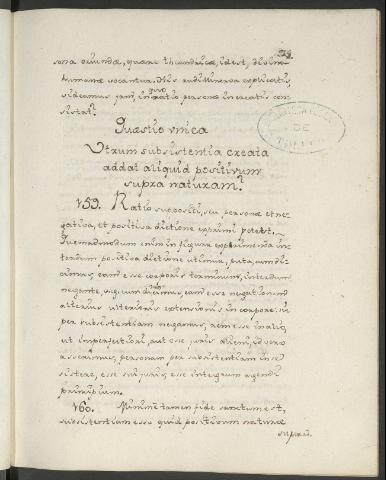 sona oriundæ, quare theandricæ, id est, divino
humanæ vocantur. His audi Minerva explicatis,
videamus jam, in quo ratio personæ increatæ con
sistat?
Quæstio unica
Utrum subsistentia creata
addat aliquid positivum
supra naturam?
159. Ratio suppositi, seu personæ et ne
gativa, et positiva dictione exprimi potest.
Quemadmodum enim in figura exprimenda in
terdum positiva dictione utimur, puta, cum di
cimus, eam esse corporis terminum, interdum
negante, vig. cum dicimus, eam esse negationem
alterius ulterioris extensionis in corpore: si
per subsistentiam negamus, rem esse in alio,
ut imperfectiori, aut esse juris alieni, id vero
asserimus, personam per subsistentiam in se
sistere, esse sui juris, esse integrum agendi
principium.
160. Minimè tamen fide sanctum est,
subsistentiam esse quid positivum naturæ
superad
DE